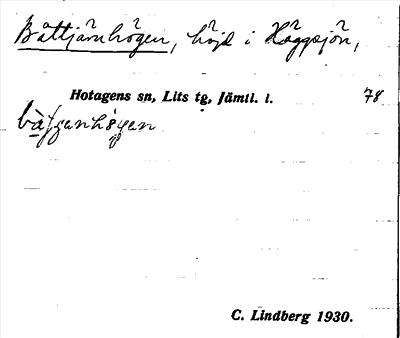 Båttjärnhögen, höjd i Häggsjön,
Hotagens sn, Lits tg, Jämtl. l. 78
C. Lindberg 1930.